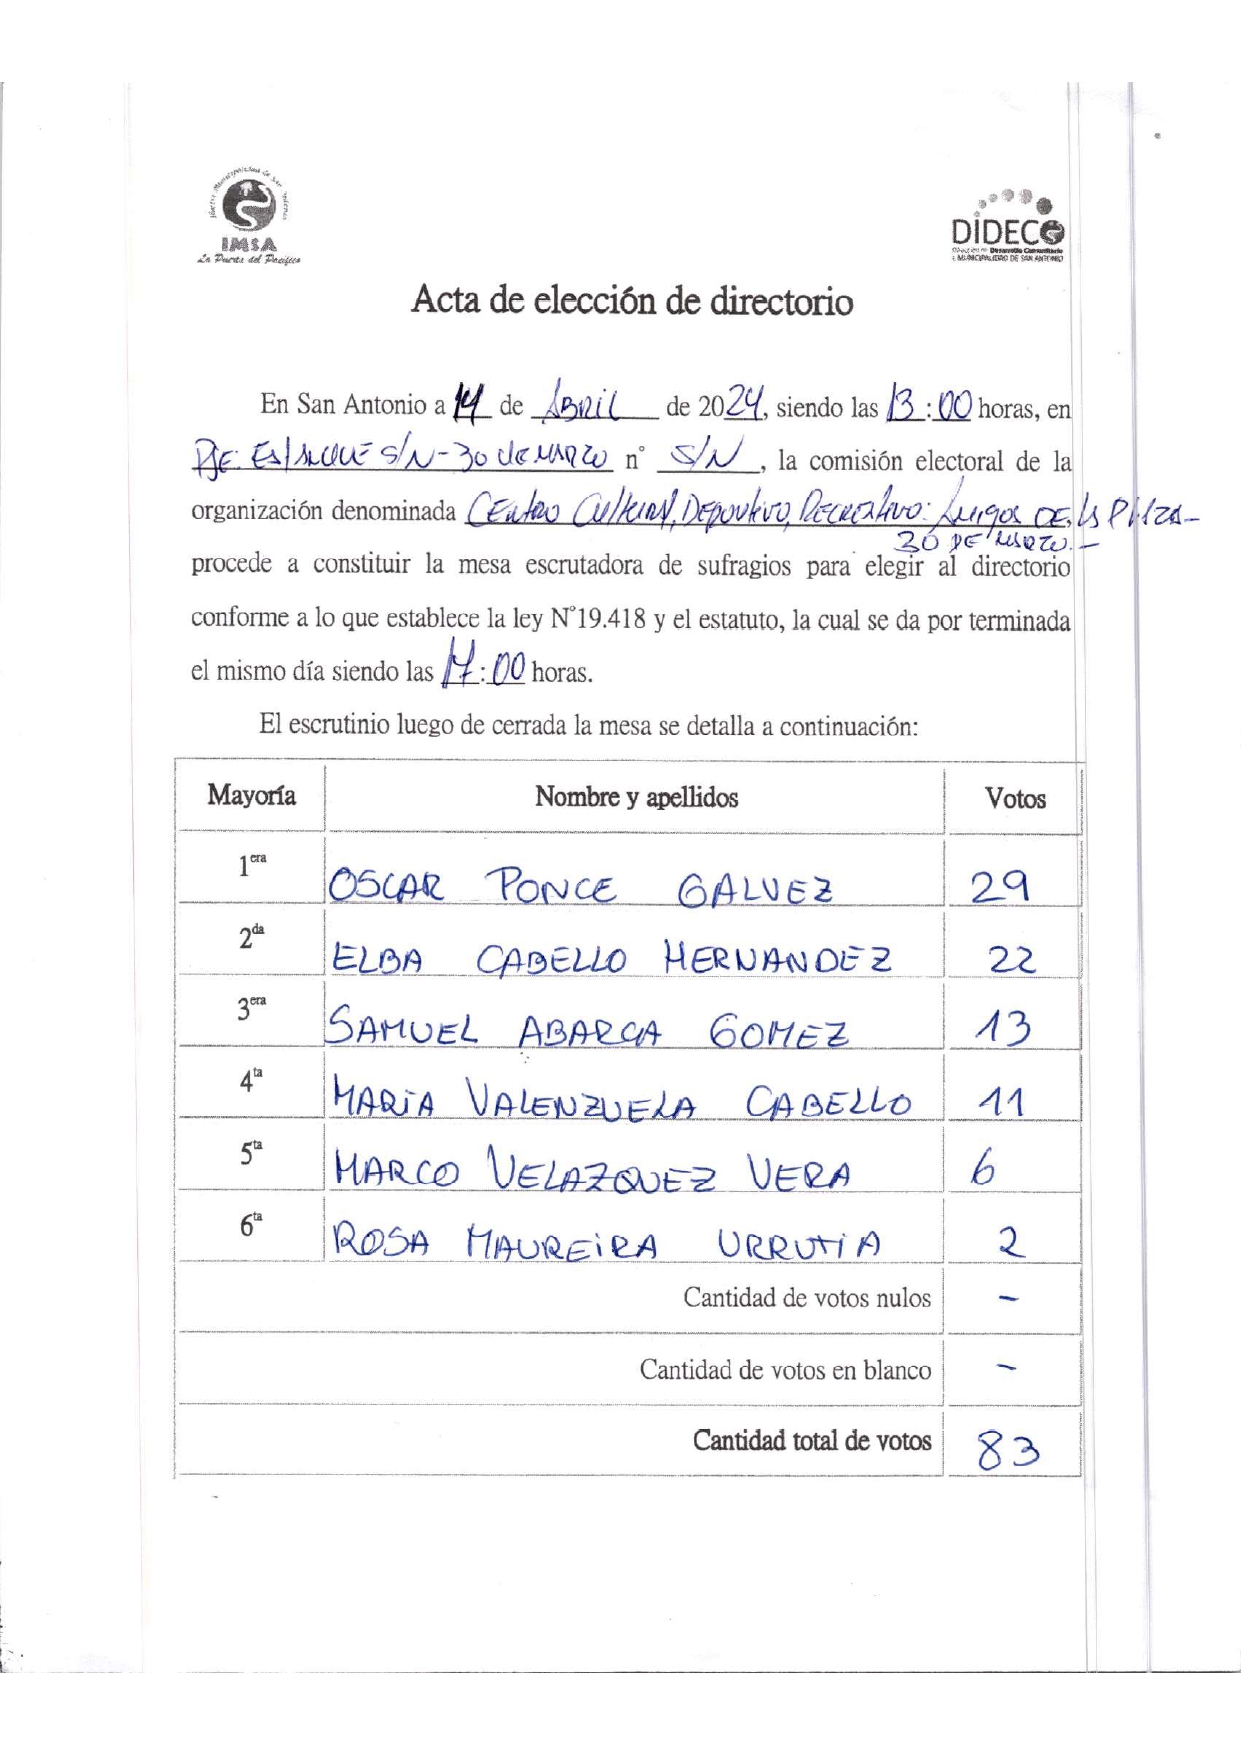 Ilustre Municipalidad de San Antonio
IMSA
La Puerta del Pacífico
DIDECO
Dirección de Desarrollo Comunitario
I. MUNICIPALIDAD DE SAN ANTONIO
Acta de elección de directorio
En San Antonio a 14 de ABRIL de 2024, siendo las 13:00 horas, en
PJE. ESTANQUE S/N - 30 DE MARZO n° S/N, la comisión electoral de la
organización denominada CENTRO CULTURAL, DEPORTIVO, RECREATIVO: AMIGOS DE LA PLAZA
30 DE MARZO.-
procede a constituir la mesa escrutadora de sufragios para elegir al directorio
conforme a lo que establece la ley N°19.418 y el estatuto, la cual se da por terminada
el mismo día siendo las 17:00 horas.
El escrutinio luego de cerrada la mesa se detalla a continuación:
Mayoría Nombre y apellidos Votos
1era OSCAR PONCE GALVEZ 29
2da ELBA CABELLO HERNANDEZ 22
3era SAMUEL ABARCA GOMEZ 13
4ta MARIA VALENZUELA CABELLO 11
5ta MARCO VELAZQUEZ VERA 6
6ta ROSA MAUREIRA URRUTIA 2
Cantidad de votos nulos -
Cantidad de votos en blanco -
Cantidad total de votos 83